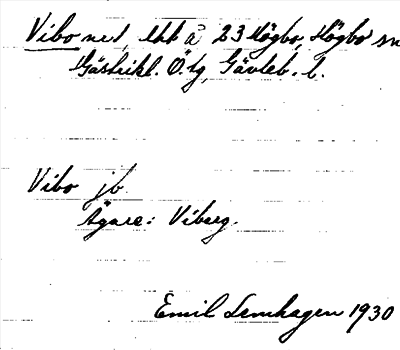 Vibo ned, ekt å 23 Högbo, Högbo sn
Gästrikl. Ö. tg, Gävleb. l.
Vibo jb.
Ägare: Viberg.
Emil Lenhagen 1930